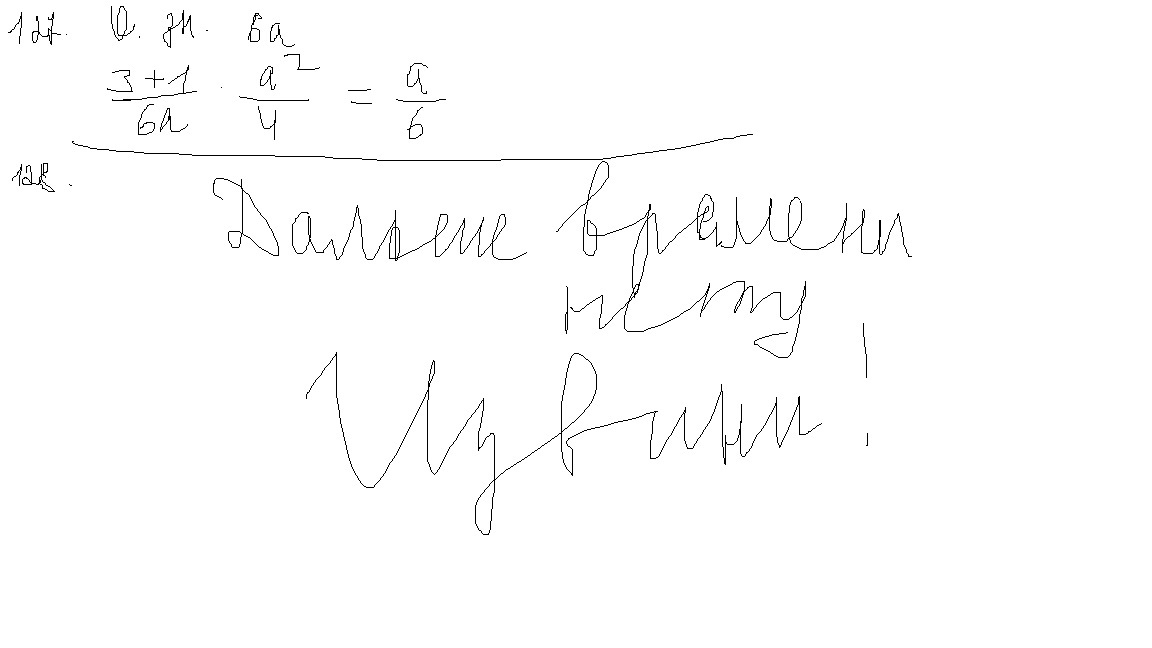 127. О. зн. 6a
3+1/6a · a²/4 = a/6
128.
Дальше времени
нету
Извини!